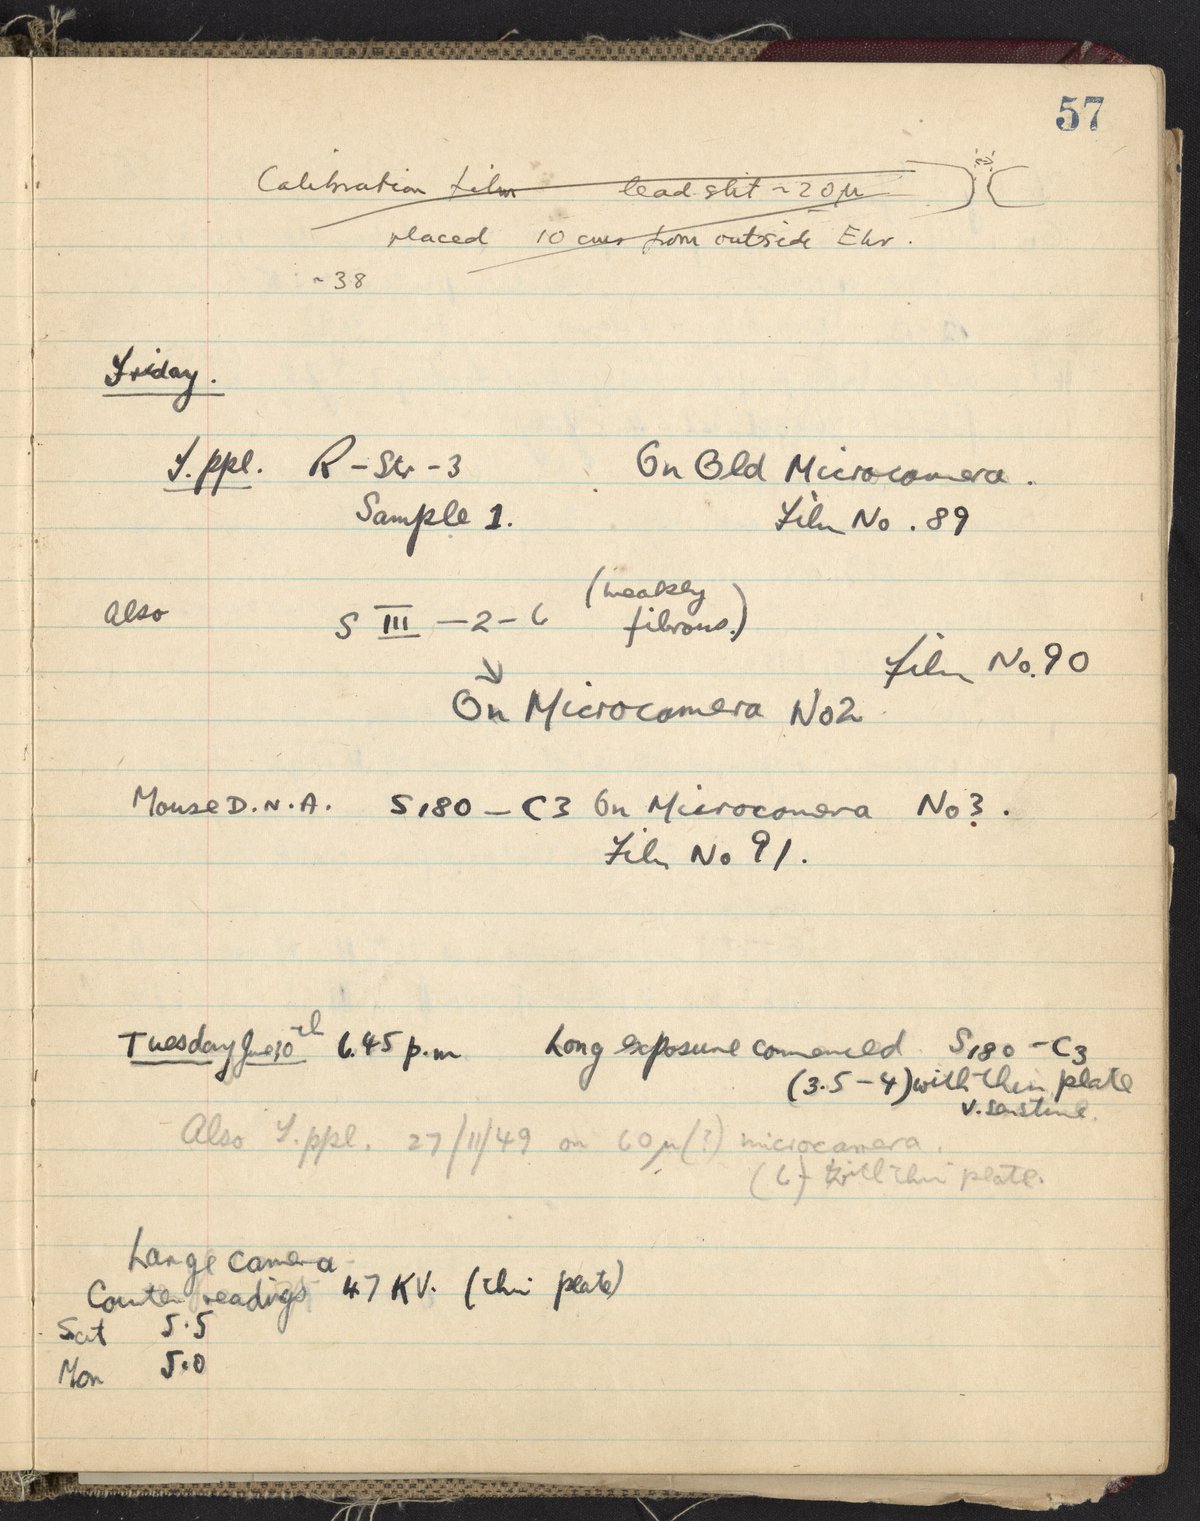 57
Calibration film lead slit ~20μ
placed 10 cms from outside Ehr.
~38
Friday.
Y.ppl. R-Str-3 On Old Microcamera.
Sample 1. Film No. 89
Also S III -2-6 (weakly
fibrous.)
Film No.90
On Microcamera No2
Mouse D.N.A. S180-C3 On Microcamera No3.
Film No 91.
Tuesday June 30th 6.45 p.m Long exposure commenced S180-C3
(3.5-4) with thin plate
Also Y.ppl. 27/11/49 on 60μ(?) microcamera.
(6) with thin plate.
Large camera
Counter readings 47 KV. (thin plate)
Sat 5.5
Mon 5.0